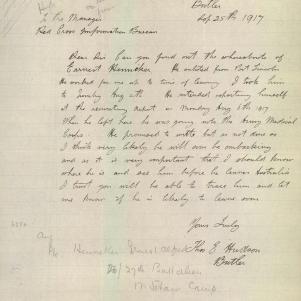 Butler
Sep 25th 1917
To the Manager
Red Cross Information Bureau
Dear Sir Can you find out the whereabouts of
Earnest Henneker He enlisted from Port Lincoln
He worked for me up to time of leaving I took him
to Aug 4th He intended reporting himself
at the recruiting depot on Monday Aug 6th 1917
When he left here he was going into the Army Medical
Corps. He promised to write but as not done so
I think very likely he will soon be embarking
and as it is very important that I should know
where he is and see him before he leaves Australia
I trust you will be able to trace him and let
me know if he is likely to leave soon
Yours Truly
Thos E Hudson
Butler
Henneker Ernest Alfred
27th Battalion
Mitcham Camp